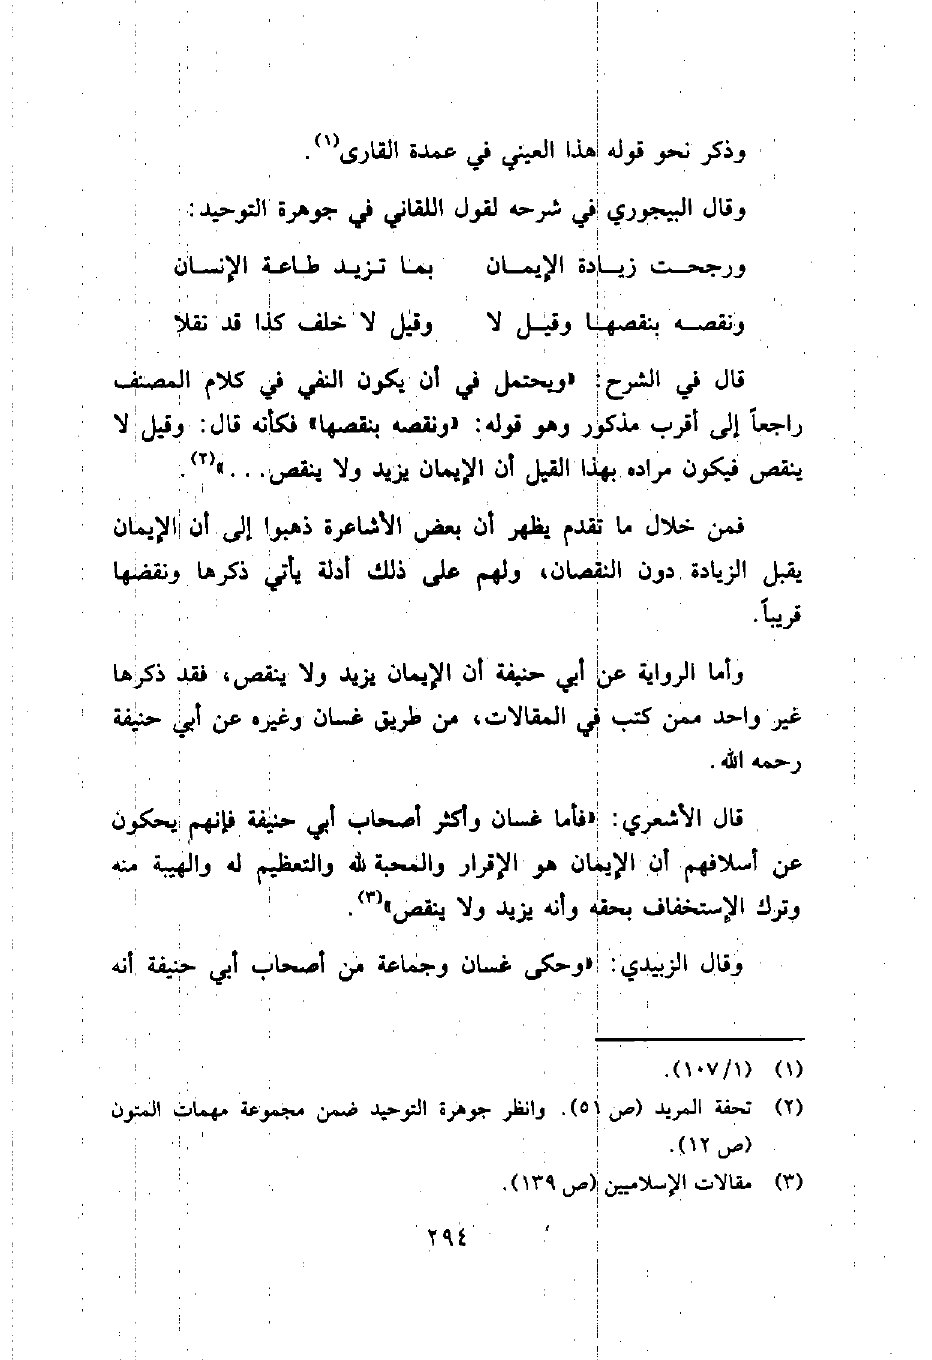 وذكر نحو قوله هذا العيني في عمدة القارى(١).
وقال البيجوري في شرحه لقول اللقاني في جوهرة التوحيد:
ورجحت زيادة الإيمان بما تزيد طاعة الإنسان
ونقصه بنقصها وقيل لا وقيل لا خلف كذا قد نقلا
قال في الشرح: «ويحتمل في أن يكون النفي في كلام المصنف
راجعاً إلى أقرب مذكور وهو قوله: «ونقصه بنقصها» فكأنه قال: وقيل لا
ينقص فيكون مراده بهذا القيل أن الإيمان يزيد ولا ينقص...»(٢).
فمن خلال ما تقدم يظهر أن بعض الأشاعرة ذهبوا إلى أن الإيمان
يقبل الزيادة دون النقصان، ولهم على ذلك أدلة يأتي ذكرها ونقضها
قريباً.
وأما الرواية عن أبي حنيفة أن الإيمان يزيد ولا ينقص، فقد ذكرها
غير واحد ممن كتب في المقالات، من طريق غسان وغيره عن أبي حنيفة
رحمه الله.
قال الأشعري: «فأما غسان وأكثر أصحاب أبي حنيفة فإنهم يحكون
عن أسلافهم أن الإيمان هو الإقرار والمحبة لله والتعظيم له والهيبة منه
وترك الإستخفاف بحقه وأنه يزيد ولا ينقص»(٣).
وقال الزبيدي: «وحكى غسان وجماعة من أصحاب أبي حنيفة أنه
(١) (١٠٧/١).
(٢) تحفة المريد (ص ٥١). وانظر جوهرة التوحيد ضمن مجموعة مهمات المتون
(ص ١٢).
(٣) مقالات الإسلاميين (ص ١٣٩).
٢٩٤